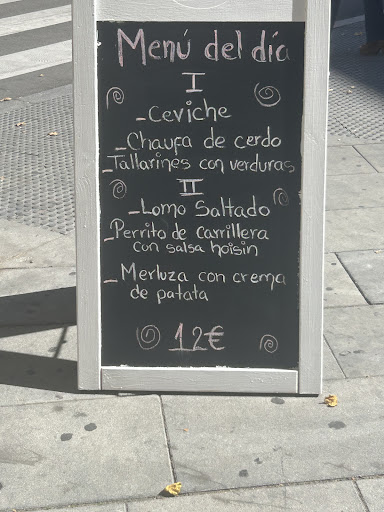 Menú del día
I
-Ceviche
-Chaufa de cerdo
-Tallarines con verduras
II
-Lomo Saltado
-Perrito de carrillera
con salsa hoisin
-Merluza con crema
de patata
12€